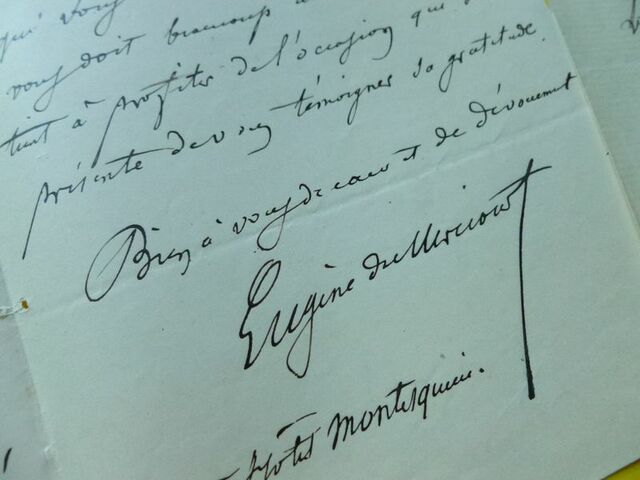 qui vous
vous doit beaucoup
tient à profiter de l'occasion qui
présente de vous témoigner sa gratitude.
Bien à vous de cœur et de dévouement
Eugène de Mirecourt
Hôtel Montesquieu.